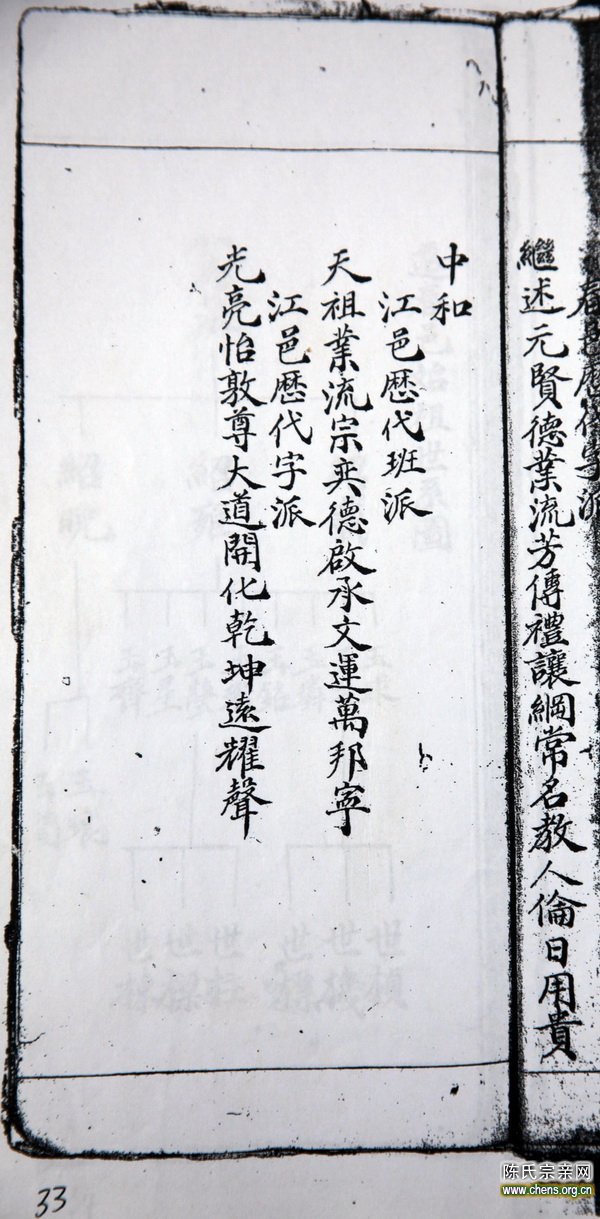 繼述元賢德業流芳傳禮讓綱常名教人倫日用貴
中和
江邑歷代班派
天祖業流宗奕德啟承文運萬邦寧
江邑歷代字派
光亮怡敦尊大道開化乾坤遠耀聲
33
陈氏宗亲网
www.chens.org.cn